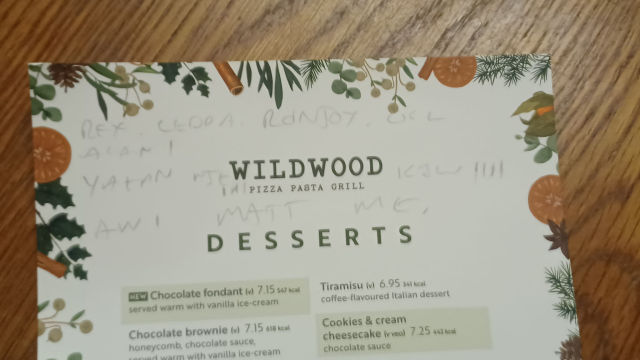 REX. CEDRA. RONJOY.
ALAN I
WILDWOOD
PIZZA PASTA GRILL
AWI MATT ME.
DESSERTS
NEW Chocolate fondant (v) 7.15 547 kcal
served warm with vanilla ice-cream
Chocolate brownie (v) 7.15 618 kcal
honeycomb, chocolate sauce,
served warm with vanilla ice-cream
Tiramisu (v) 6.95 341 kcal
coffee-flavoured Italian dessert
Cookies & cream
cheesecake (v veo) 7.25 443 kcal
chocolate sauce